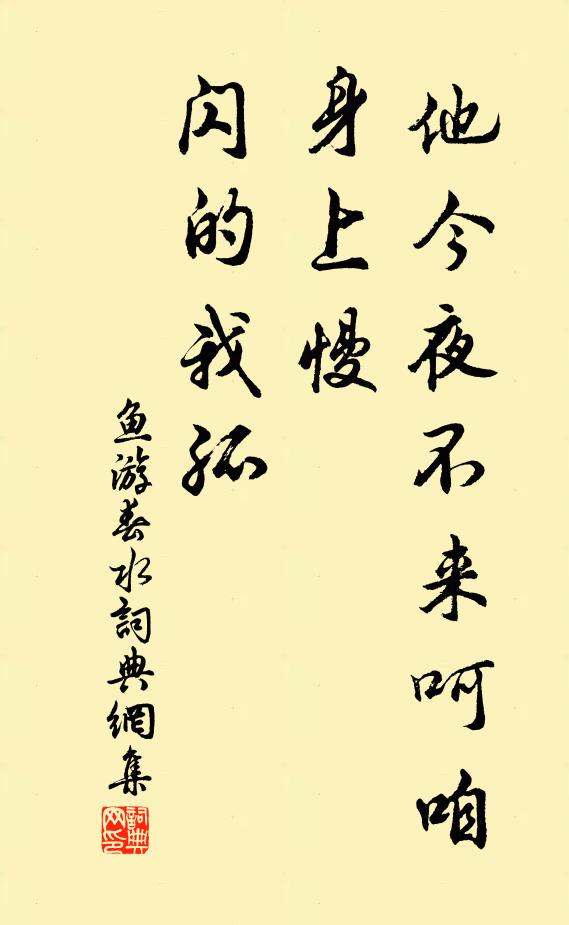 他今夜不来呵咱
身上慢
闪的我孤
鱼游春水詞典網集
詞典
网印